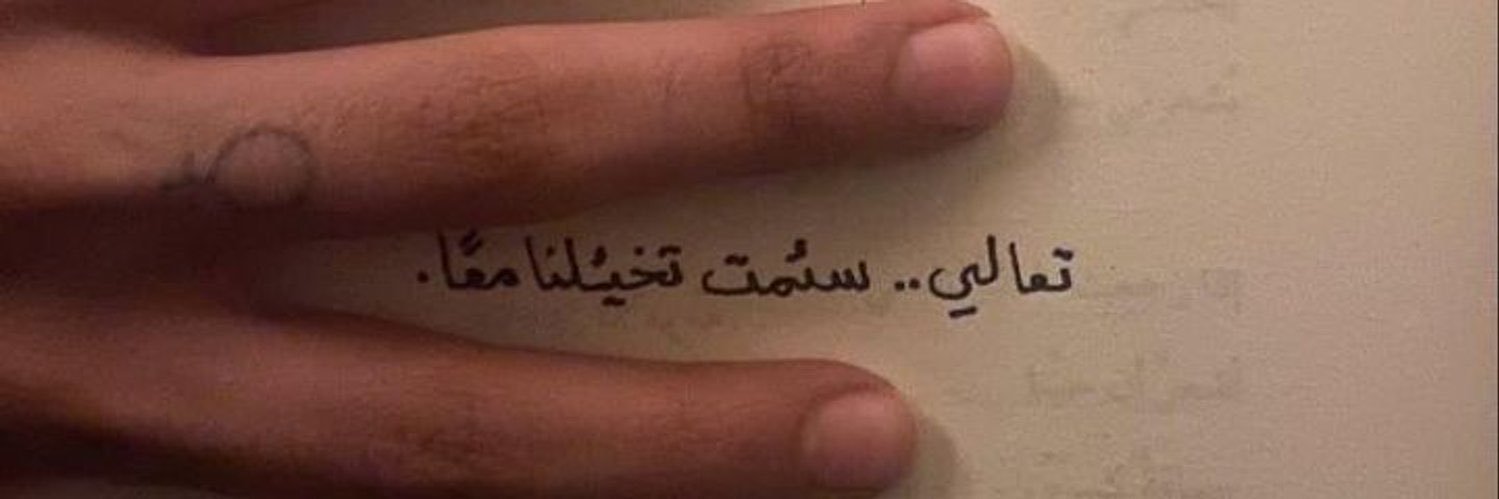 تعالي.. سئمت تخيُلنا معًا.